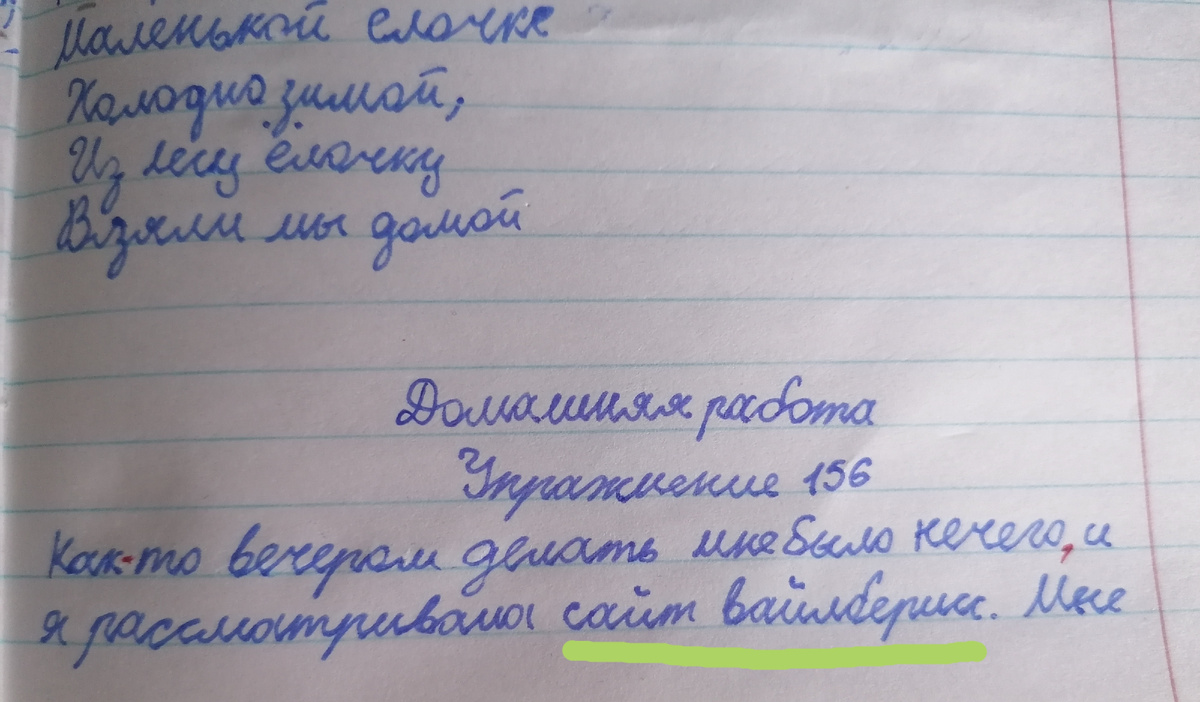 Маленькой елочке
Холодно зимой,
Из лесу ёлочку
Взяли мы домой
Домашняя работа
Упражнение 156
Как-то вечером делать мне было нечего, и
я рассматривала сайт вайлберикс. Мне